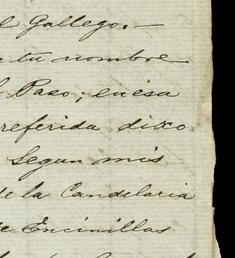 l Gallego.—
tu nombre
l Paso; en esa
referida dixo
Segun mis
de la Candelaria
de Encinillas